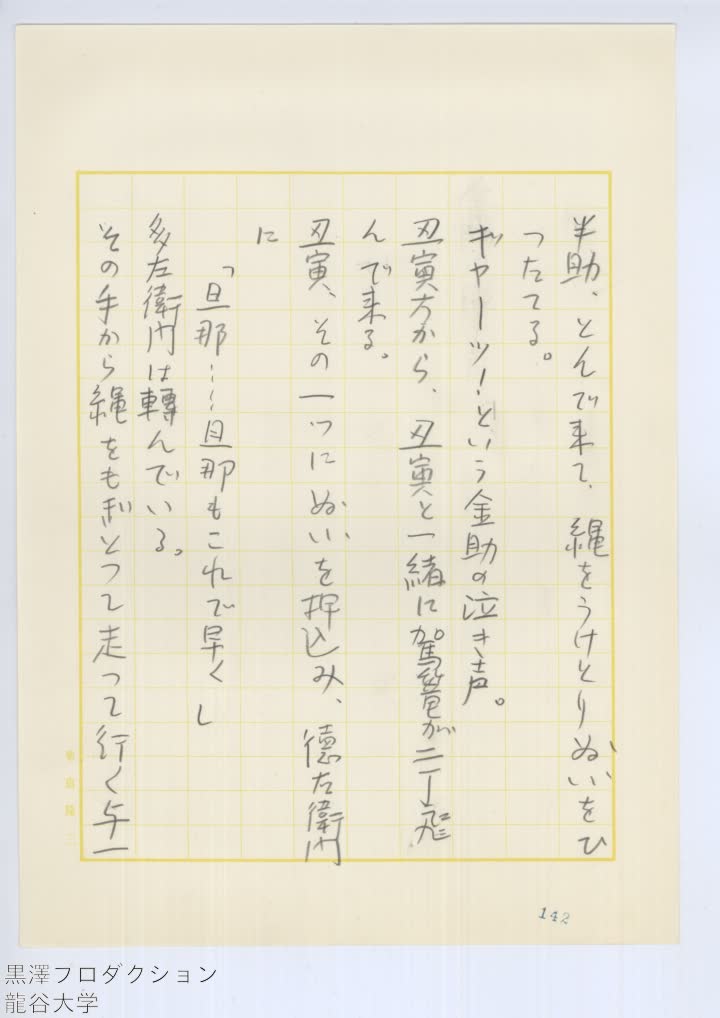 半助、とんで来て、縄をうけとりぬいをひ
つたてる。
ギャーッ！という金助の泣き声。
丑寅方から、丑寅と一緒に駕籠が二丁飛
んで来る。
丑寅、その一つにぬいを押込み、徳左衛門
に
「旦那……旦那もこれで早く」
多左衛門は轉んでいる。
その手から縄をもぎとって走って行く与一
142
黒澤プロダクション
龍谷大学